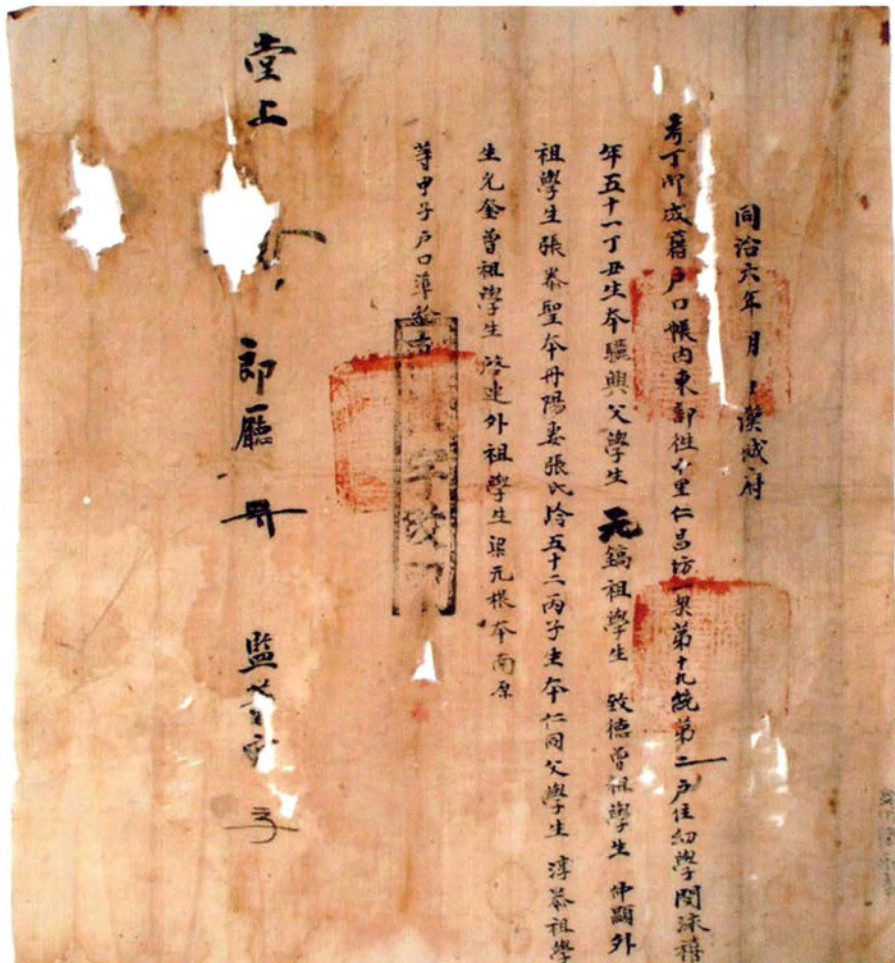 同治六年 月 日漢城府
考丁卯成籍戶口帳內東部 仁昌坊 契第十九統第二戶住幼學閔泳
年五十一丁丑生本驪興父學生 元鎬祖學生 致德曾祖學生 仲顯外
祖學生張泰聖本丹陽妻張氏齡五十二丙子生本仁同父學生 淳恭祖學
生光奎曾祖學生 啓建外祖學生梁元根本南原
等甲子戶口準給者
堂上 郞廳 監